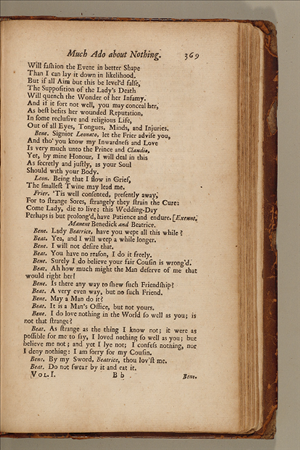 Much Ado about Nothing. 369
Will fashion the Event in better Shape
Than I can lay it down in likelihood.
But if all Aim but this be level'd false,
The Supposition of the Lady's Death
Will quench the Wonder of her Infamy.
And if it sort not well, you may conceal her,
As best befits her wounded Reputation,
In some reclusive and religious Life,
Out of all Eyes, Tongues, Minds, and Injuries.
Bene. Signior Leonato, let the Frier advise you,
And tho' you know my Inwardness and Love
Is very much unto the Prince and Claudio,
Yet, by mine Honour, I will deal in this
As secretly and justly, as your Soul
Should with your Body.
Leon. Being that I flow in Grief,
The smallest Twine may lead me.
Frier. 'Tis well consented, presently away,
For to strange Sores, strangely they strain the Cure:
Come Lady, die to live; this Wedding-Day
Perhaps is but prolong'd, have Patience and endure. [Exeunt,
Manent Benedick and Beatrice.
Bene. Lady Beatrice, have you wept all this while?
Beat. Yea, and I will weep a while longer.
Bene. I will not desire that.
Beat. You have no reason, I do it freely.
Bene. Surely I do believe your fair Cousin is wrong'd.
Beat. Ah how much might the Man deserve of me that
would right her!
Bene. Is there any way to shew such Friendship?
Beat. A very even way, but no such Friend.
Bene. May a Man do it?
Beat. It is a Man's Office, but not yours.
Bene. I do love nothing in the World so well as you; is
not that strange?
Beat. As strange as the thing I know not; it were as
possible for me to say, I loved nothing so well as you; but
believe me not; and yet I lye not; I confess nothing, nor
I deny nothing: I am sorry for my Cousin.
Bene. By my Sword, Beatrice, thou lov'st me.
Beat. Do not swear by it and eat it.
VOL. I. B b Bene.